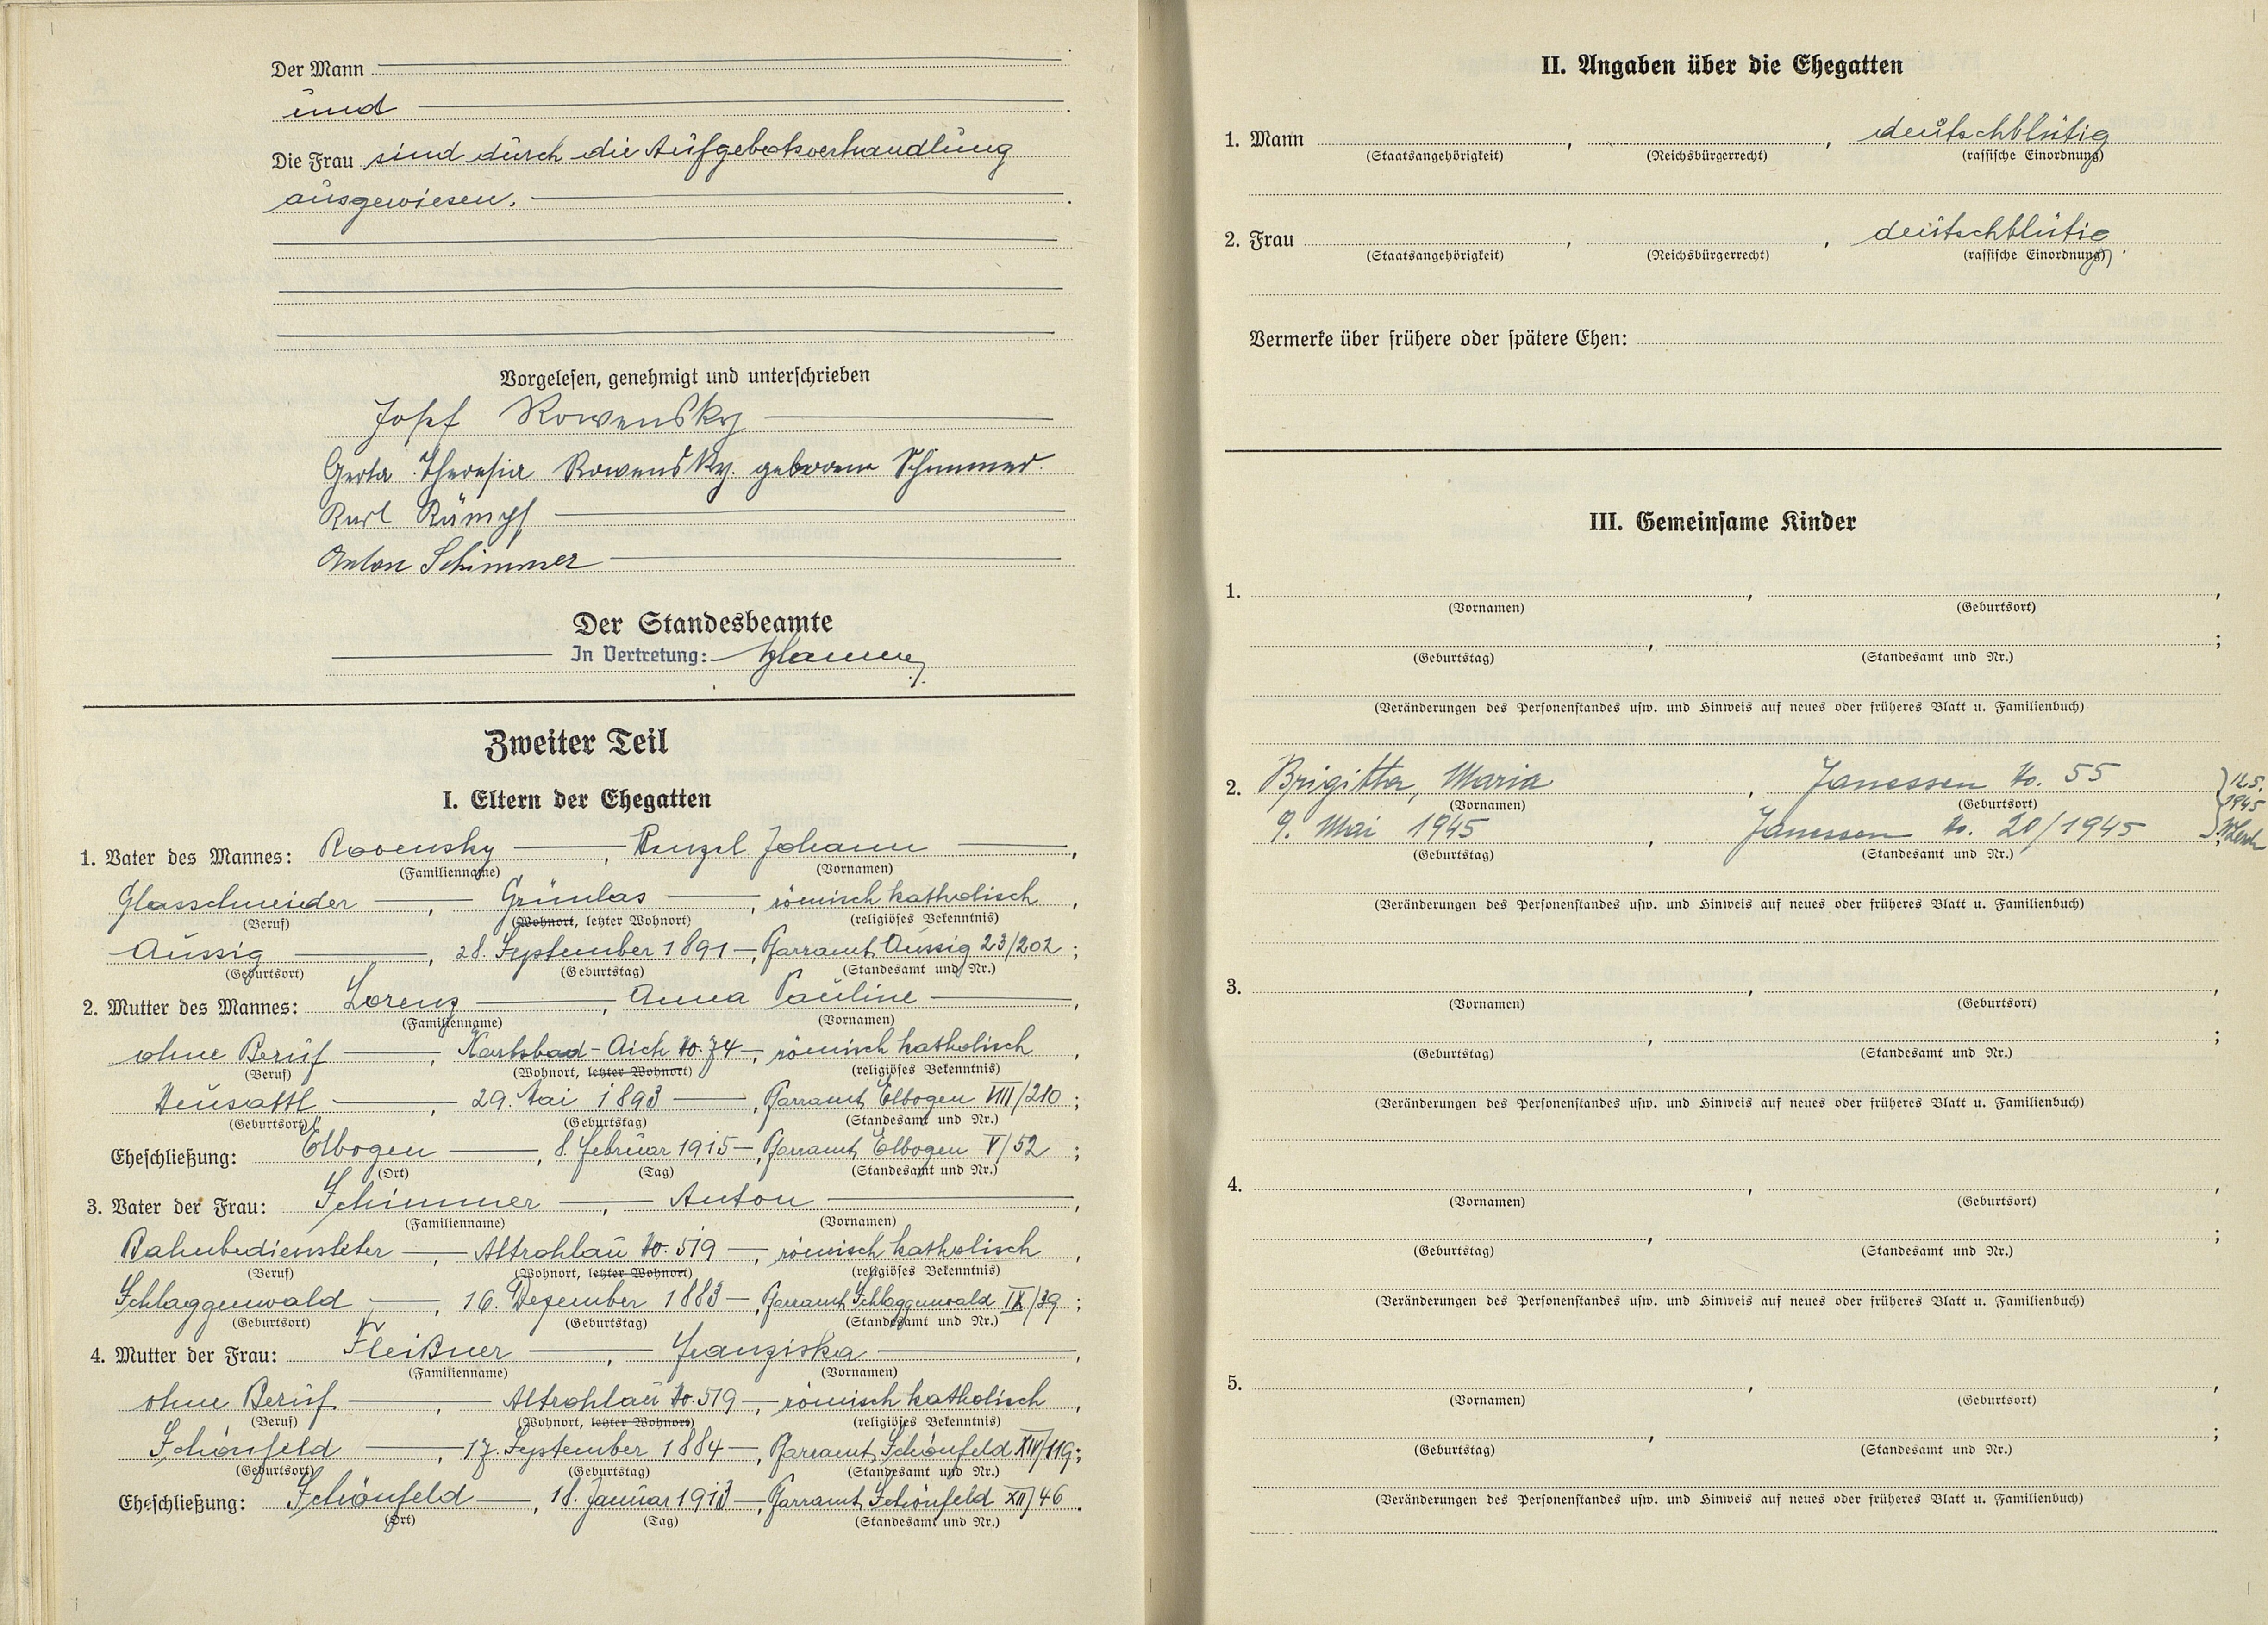 Der Mann
und
Die Frau sind durch die Aufgebotsverhandlung
ausgewiesen.
Vorgelesen, genehmigt und unterschrieben
Josef Rowensky
Gerta Theresia Rowensky. geborene Schimmer.
Karl Rümpf
Anton Schimmer
Der Standesbeamte
In Vertretung:
Zweiter Teil
I. Eltern der Ehegatten
1. Vater des Mannes: Rovensky, Wenzel Johann,
(Familienname) (Vornamen)
Glasschneider, Grünlas, römisch katholisch,
(Beruf) (Wohnort, letzter Wohnort) (religiöses Bekenntnis)
Aussig, 28. September 1891, Pfarramt Aussig 23/202;
(Geburtsort) (Geburtstag) (Standesamt und Nr.)
2. Mutter des Mannes: Lorenz, Anna Pauline,
(Familienname) (Vornamen)
ohne Beruf, Karlsbad-Aich No. 74, römisch katholisch,
(Beruf) (Wohnort, letzter Wohnort) (religiöses Bekenntnis)
Neusattl, 29. Mai 1893, Pfarramt Elbogen VIII/210;
(Geburtsort) (Geburtstag) (Standesamt und Nr.)
Eheschließung: Elbogen, 8. Februar 1915, Pfarramt Elbogen V/52;
(Ort) (Tag) (Standesamt und Nr.)
3. Vater der Frau: Schimmer, Anton,
(Familienname) (Vornamen)
Bahnbediensteter, Altrohlau No. 519, römisch katholisch,
(Beruf) (Wohnort, letzter Wohnort) (religiöses Bekenntnis)
Schlaggenwald, 16. Dezember 1883, Pfarramt Schlaggenwald IX/39;
(Geburtsort) (Geburtstag) (Standesamt und Nr.)
4. Mutter der Frau: Fleißner, Franziska,
(Familienname) (Vornamen)
ohne Beruf, Altrohlau No. 519, römisch katholisch,
(Beruf) (Wohnort, letzter Wohnort) (religiöses Bekenntnis)
Schönfeld, 17. September 1884, Pfarramt Schönfeld XIV/119;
(Geburtsort) (Geburtstag) (Standesamt und Nr.)
Eheschließung: Schönfeld, 18. Januar 1913, Pfarramt Schönfeld XII/46.
(Ort) (Tag) (Standesamt und Nr.)
II. Angaben über die Ehegatten
1. Mann , , deutschblütig
(Staatsangehörigkeit) (Reichsbürgerrecht) (rassische Einordnung)
2. Frau , , deutschblütig
(Staatsangehörigkeit) (Reichsbürgerrecht) (rassische Einordnung)
Vermerke über frühere oder spätere Ehen:
III. Gemeinsame Kinder
1. , ,
(Vornamen) (Geburtsort)
, ;
(Geburtstag) (Standesamt und Nr.)
(Veränderungen des Personenstandes usw. und Hinweis auf neues oder früheres Blatt u. Familienbuch)
2. Brigitta, Maria, Janessen No. 55 12.5.
(Vornamen) (Geburtsort) 1945
9. Mai 1945, Janessen No. 20/1945
(Geburtstag) (Standesamt und Nr.)
(Veränderungen des Personenstandes usw. und Hinweis auf neues oder früheres Blatt u. Familienbuch)
3. , ,
(Vornamen) (Geburtsort)
, ;
(Geburtstag) (Standesamt und Nr.)
(Veränderungen des Personenstandes usw. und Hinweis auf neues oder früheres Blatt u. Familienbuch)
4. , ,
(Vornamen) (Geburtsort)
, ;
(Geburtstag) (Standesamt und Nr.)
(Veränderungen des Personenstandes usw. und Hinweis auf neues oder früheres Blatt u. Familienbuch)
5. , ,
(Vornamen) (Geburtsort)
, ;
(Geburtstag) (Standesamt und Nr.)
(Veränderungen des Personenstandes usw. und Hinweis auf neues oder früheres Blatt u. Familienbuch)